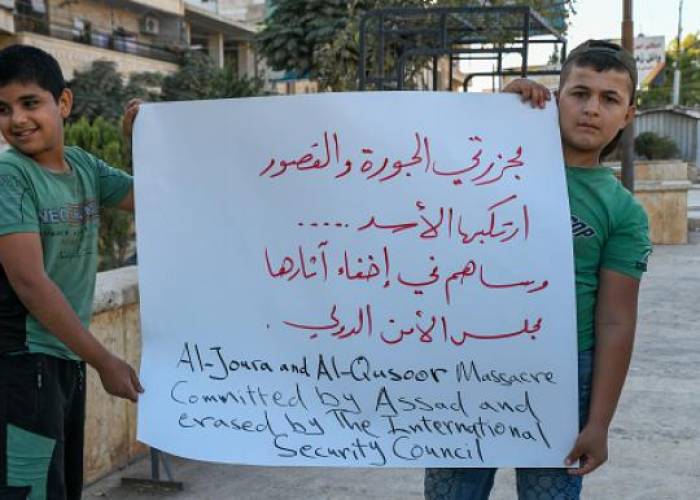 مجزرتي الجورة والقصور
ارتكبها الأسد .....
وساهم في إخفاء آثارها
مجلس الأمن الدولي .
Al-Joura and Al-Qusoor Massacre
Committed by Assad and
erased by The International
Security Council